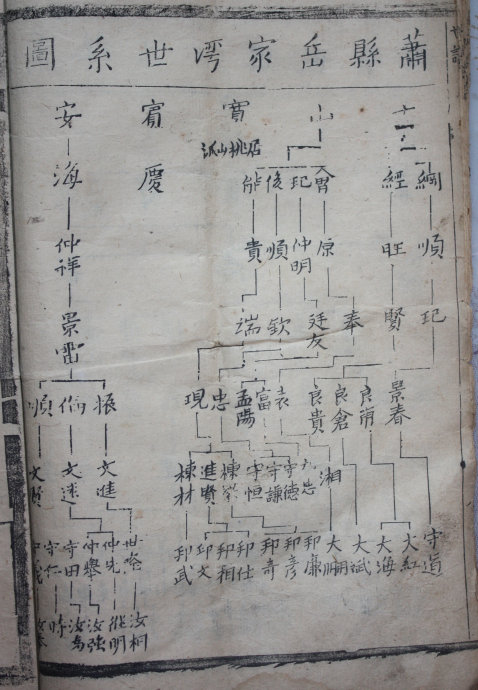 蕭縣岳家灣世系圖
山 寶 賓 安
居桃山派
慶 海
綱 經 冑 玘 俊 能
順 旺 原 仲明 順 貴 仲祥
玘 賢 奉 廷友 欽 端 景雷
景春 良甫 良倉 良貴 袁 富 孟陽 忠 現 振 倫 順
湘 九忠 守德 守謙 守恒 棟 進賢 棟材 文進 文迷 文賢
守道 大紅 大海 大斌 大鵬 邦廉 邦彥 邦奇 邦仕 邦相 邦文 邦武 仲先 仲舉 守田 守仁
汝桐 維明 汝強 汝為 時